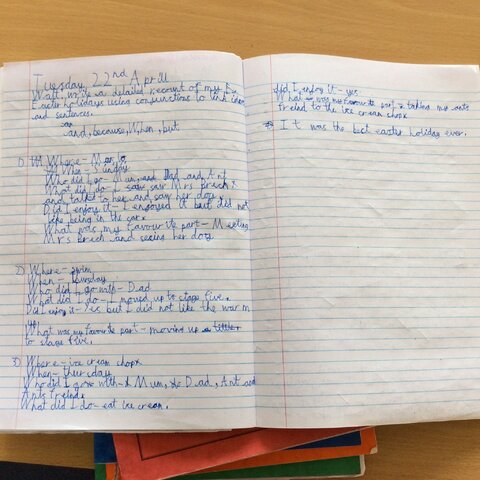 Tuesday 22nd April
Walt write a detailed recount of my
Easter holidays using conjunctions to link ideas
and sentences.
and, because, When, but
1) Where -
When - Sunday
Who did I go - Mum, and Dad and Ant
What did I do - I saw saw Mrs
and talked to her and saw her dog.
Did I enjoy it - I enjoyed it but did not
like being in the car.
What was my favourite part - Meeting
Mrs and seeing her dog
2) Where - swim
When - Thursday
Who did I go with - Dad
What did I do - I moved up to stage five.
Did I enjoy it - Yes but I did not like the war m
What was my favourite part - moving up
to stage five.
3) Where - ice cream shop
When - thursday
Who did I gow with - Mum, Dad, Ant and
Ants
What did I do - eat ice cream.
did I enjoy it - yes.
What was my favourite part - taking my ants
to the ice cream shop
It was the best easter holiday ever.